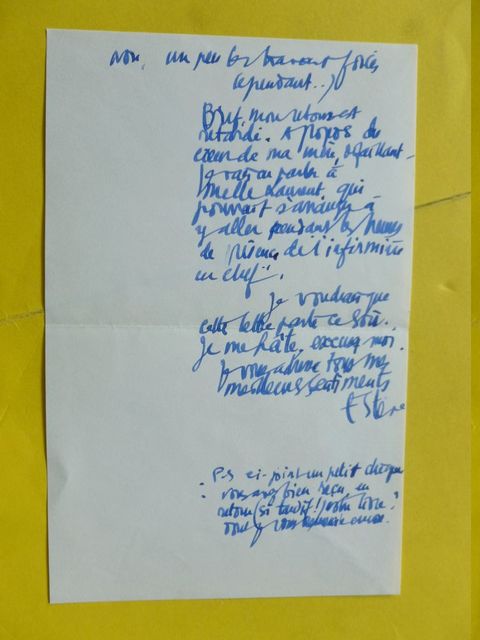 non, un peu les travaux forcés
cependant..)
Bref, mon retour est
retardé. A propos du
cœur de ma mère, défaillant
parler à
Melle Laurent qui
pourrait s'arranger à
y aller pendant les heures
de présence de l'infirmière
en chef.
Je voudrais que
cette lettre parte ce soir.
Je me hâte, excusez moi.
Je vous adresse tous mes
meilleurs sentiments
P.S ci-joint un petit chèque
: vous avez bien reçu, en
retour (si tardif!) votre livre?
encore.